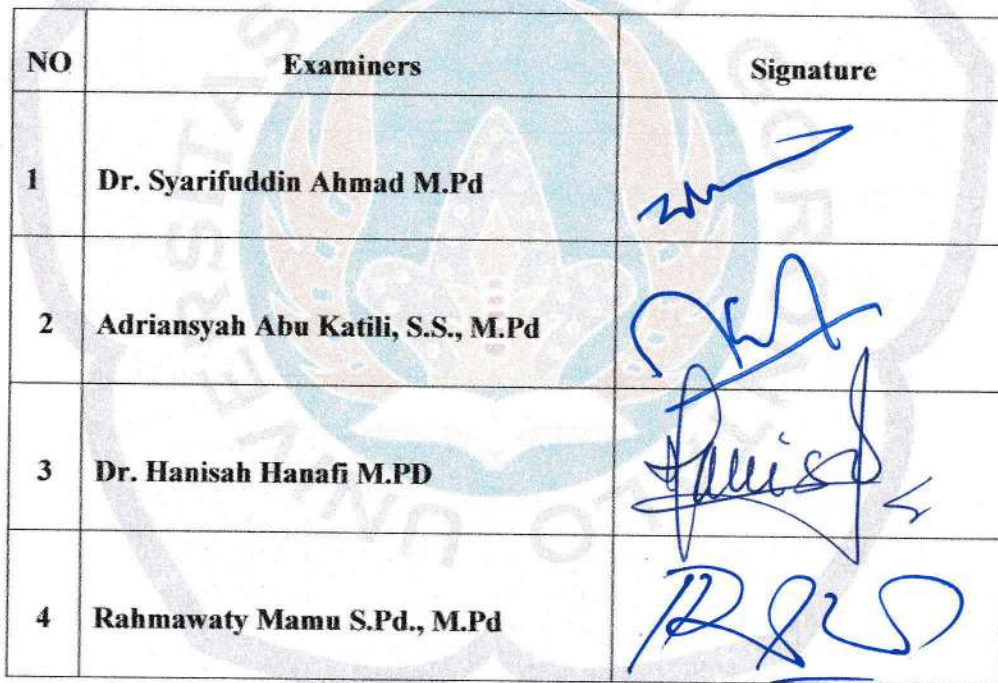 NO Examiners Signature
1 Dr. Syarifuddin Ahmad M.Pd
2 Adriansyah Abu Katili, S.S., M.Pd
3 Dr. Hanisah Hanafi M.PD
4 Rahmawaty Mamu S.Pd., M.Pd